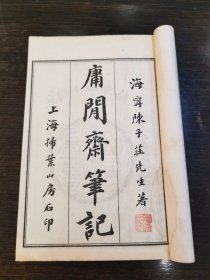 海寧陳子莊先生著
庸閒齋筆記
上海掃葉山房石印